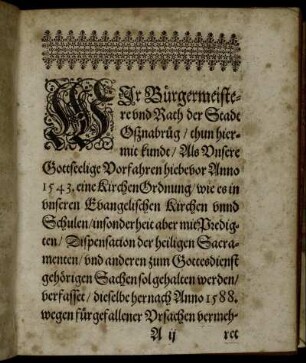 WIr Bürgermeiste-
re vnd Rath der Stadt
Oßnabrüg / thun hier-
mit kunde / Als Vnsere
Gottseelige Vorfahren hiebevor Anno
1543. eine KirchenOrdnung / wie es in
vnseren Evangelischen Kirchen vnnd
Schulen / insonderheit aber mit Predig-
ten / Dispensation der heiligen Sacra-
menten / vnd anderen zum Gottesdienst
gehörigen Sachen sol gehalten werden /
verfasset / dieselbe hernach Anno 1588.
wegen fürgefallener Vrsachen vermeh-
A ij ret